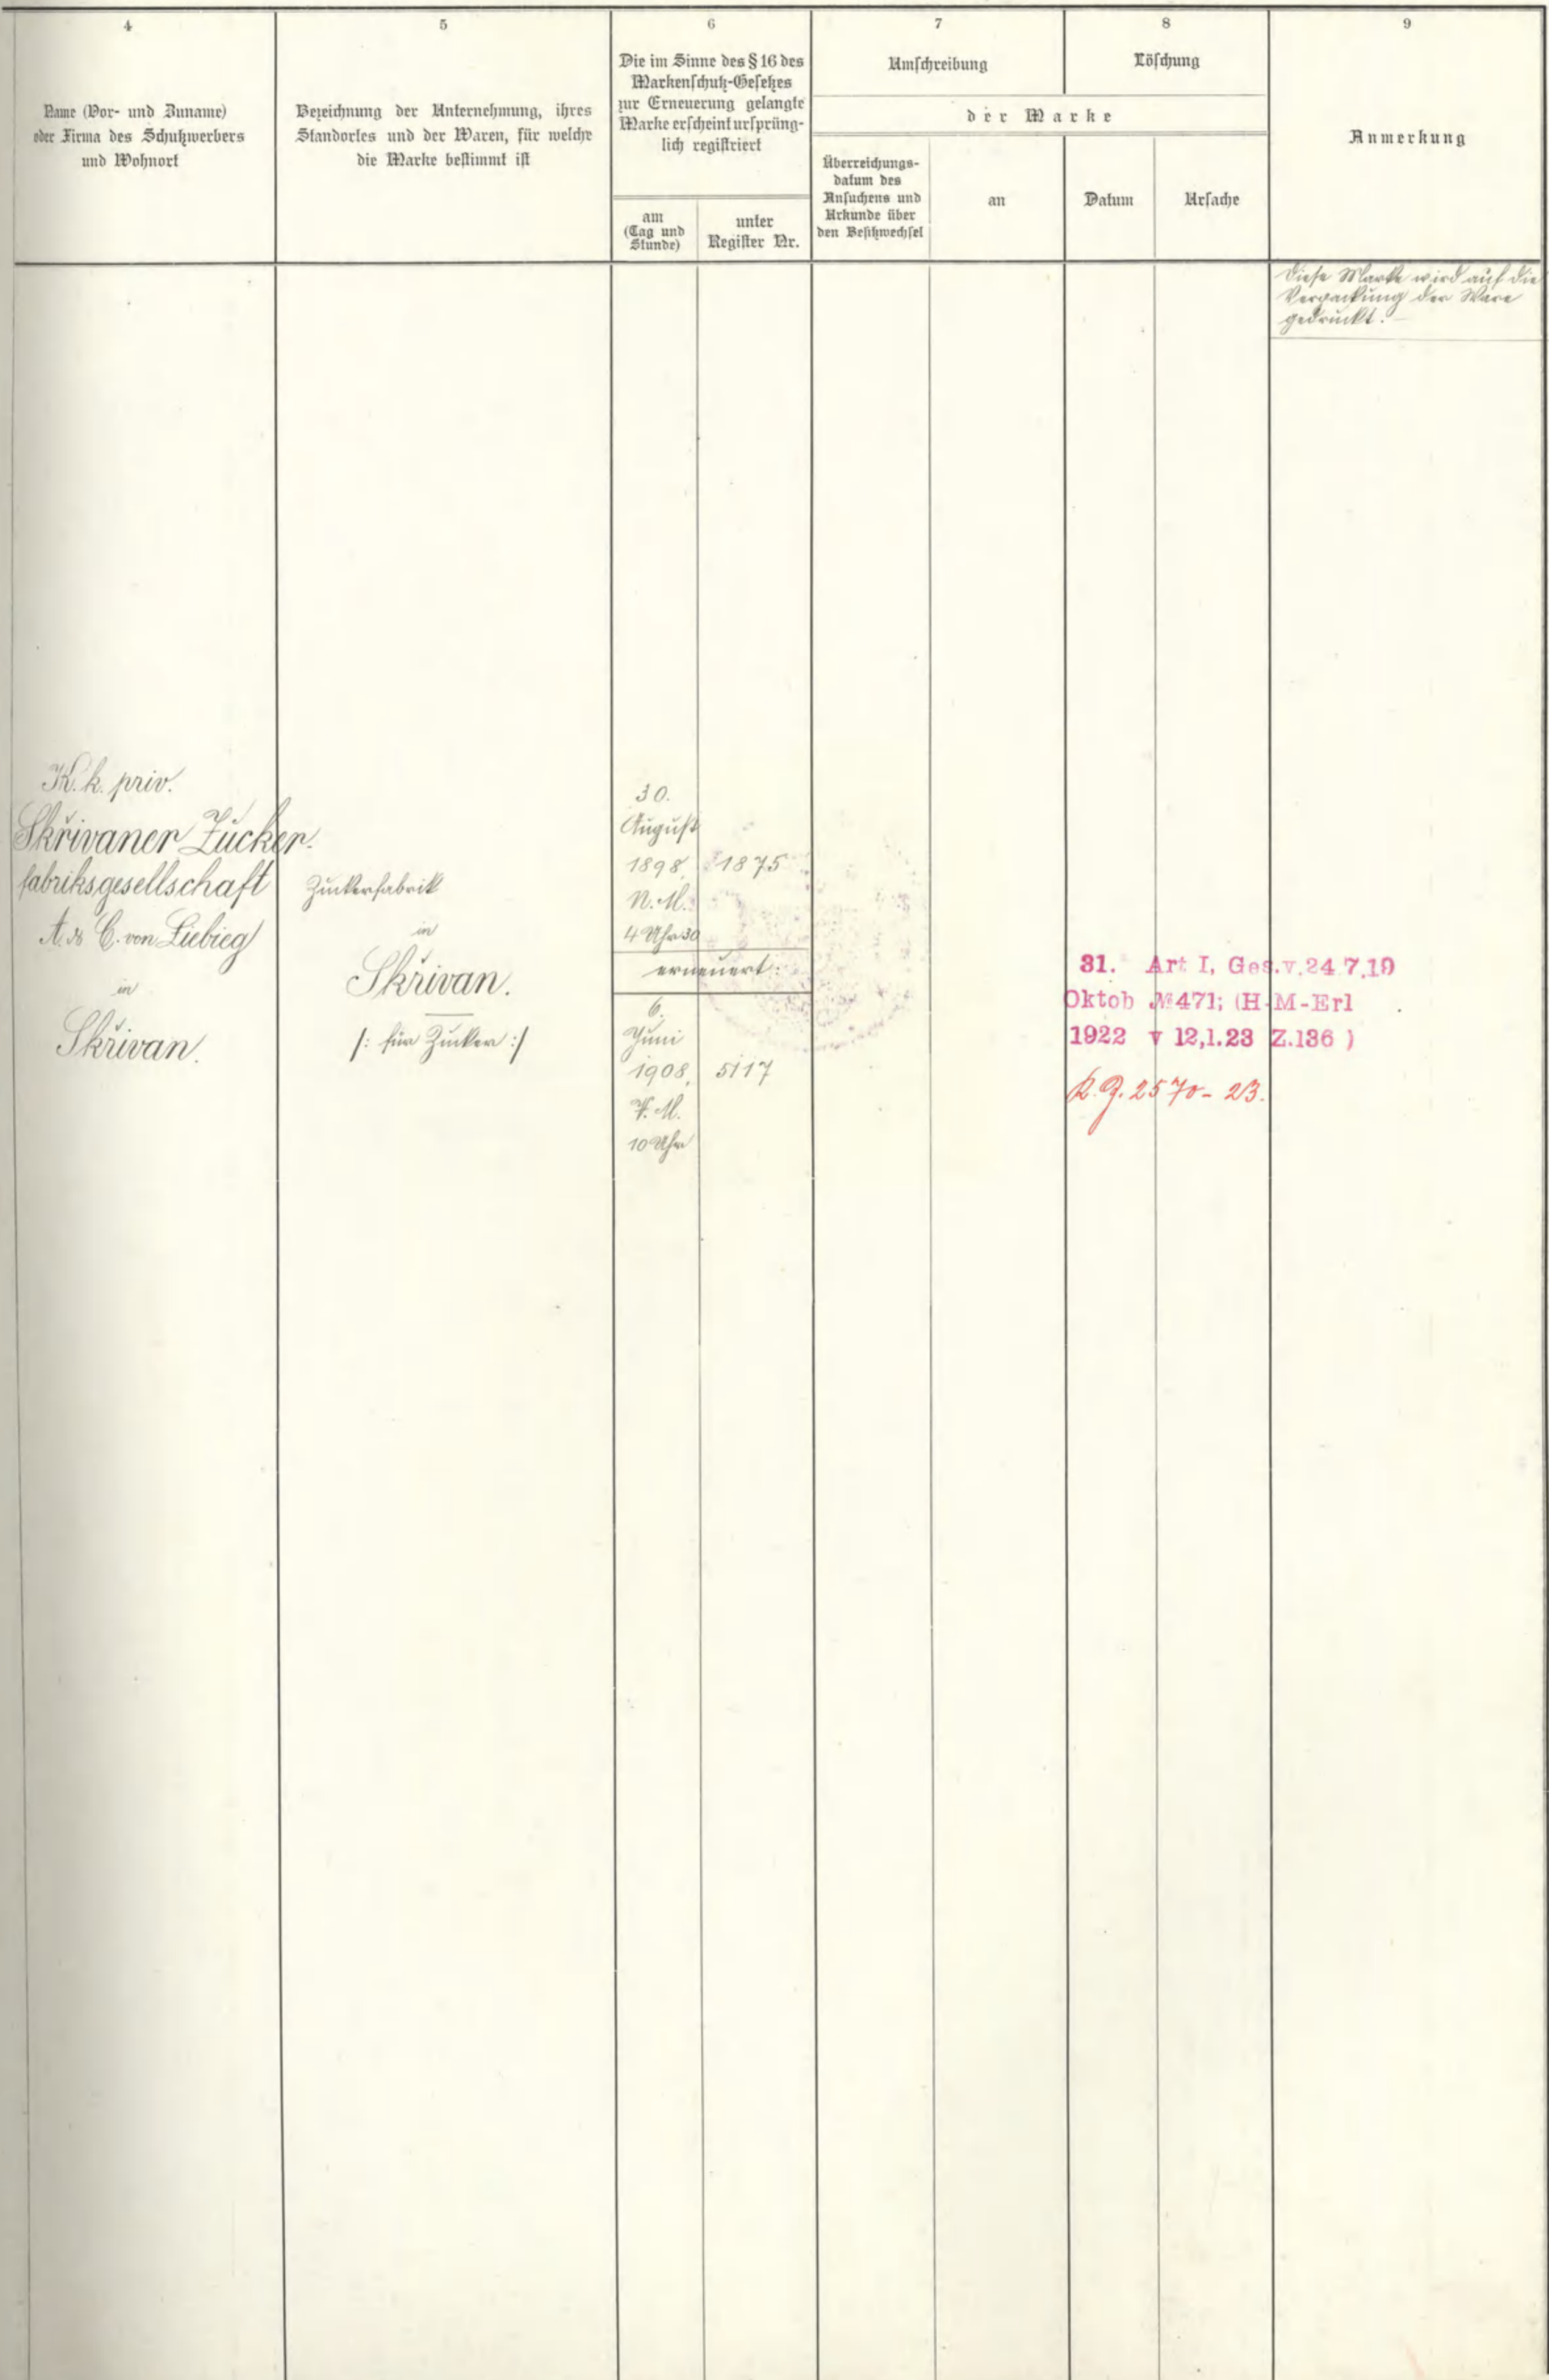 4
Name (Vor- und Zuname)
oder Firma des Schutzwerbers
und Wohnort
5
Bezeichnung der Unternehmung, ihres
Standortes und der Waren, für welche
die Marke bestimmt ist
6
Die im Sinne des § 16 des
Markenschutz-Gesetzes
zur Erneuerung gelangte
Marke erscheint ursprüng-
lich registriert
am
(Tag und
Stunde)
unter
Register Nr.
7
Umschreibung
8
Löschung
der Marke
Überreichungs-
datum des
Ansuchens und
Urkunde über
den Besitzwechsel
an
Datum
Ursache
9
Anmerkung
Diese Marke wird auf die
Verpackung der Ware
gedruckt.
K. k. priv.
Skřivaner Zucker-
fabriksgesellschaft
A. & C. von Liebieg
in
Skřivan.
Zuckerfabrik
in
Skřivan.
/: für Zucker :/
30.
August
1898, 1875
N. M.
4 Uhr 30
erneuert:
6.
Juni
1908, 5117
V. M.
10 Uhr
31. Art I, Ges.v.24.7.19
Oktob №471; (H-M-Erl
1922 v 12,1.23 Z.136 )
2570-23.